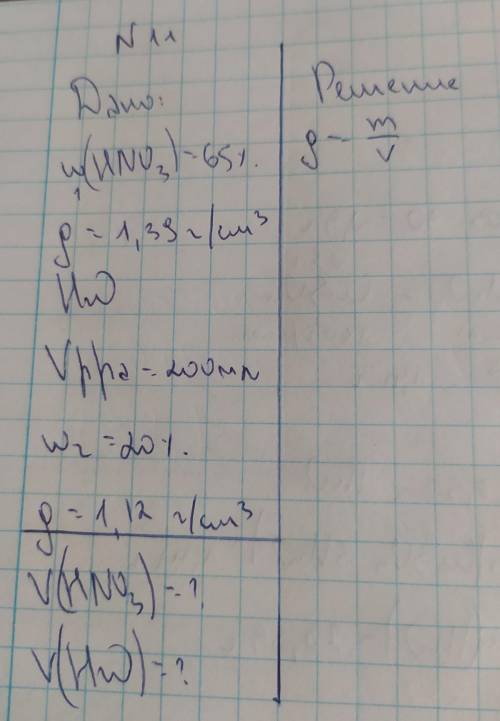 N 11
Дано:
w₁(HNO₃) = 65%.
ρ = 1,39 г/см³
H₂O
Vppa = 200мл
w₂ = 20%.
ρ = 1,12 г/см³
V(HNO₃) = ?
V(H₂O) = ?
Решение
ρ = m/v